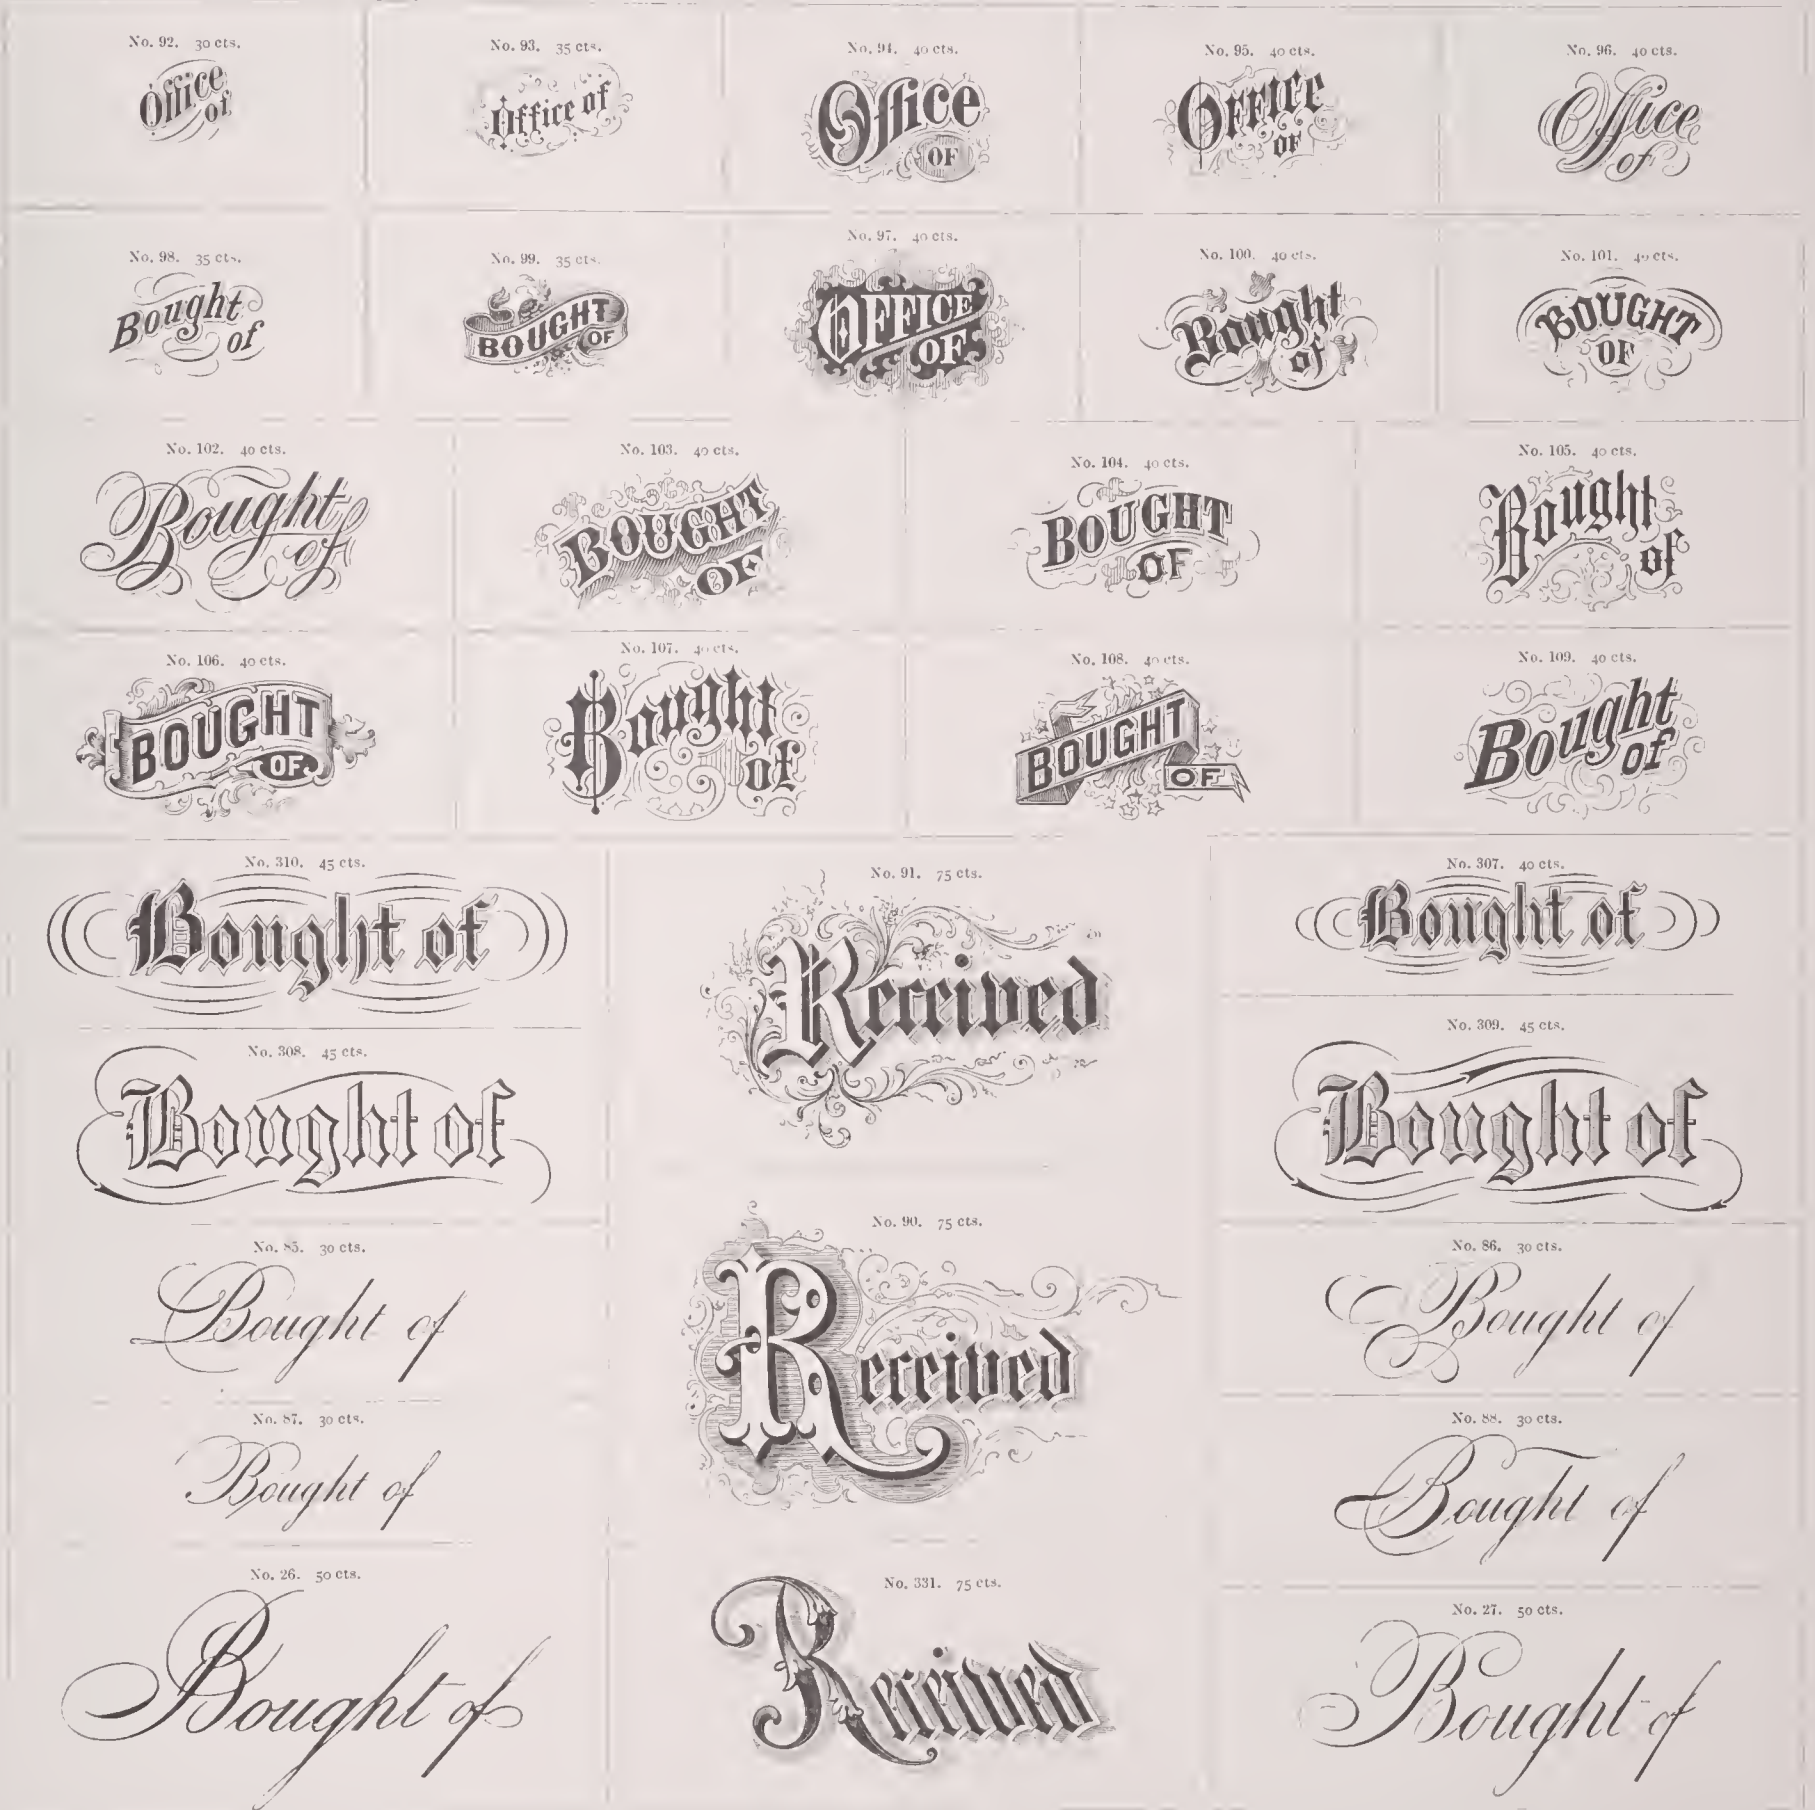 No. 92. 30 cts.
Office
of
No. 93. 35 cts.
Office of
No. 94. 40 cts.
Office
OF
No. 95. 40 cts.
OFFICE
OF
No. 96. 40 cts.
Office
of
No. 98. 35 cts.
Bought
of
No. 99. 35 cts.
BOUGHT
OF
No. 97. 40 cts.
OFFICE
OF
No. 100. 40 cts.
Bought
of
No. 101. 40 cts.
BOUGHT
OF
No. 102. 40 cts.
Bought
of
No. 103. 40 cts.
BOUGHT
OF
No. 104. 40 cts.
BOUGHT
OF
No. 105. 40 cts.
Bought
of
No. 106. 40 cts.
BOUGHT
OF
No. 107. 40 cts.
Bought
of
No. 108. 40 cts.
BOUGHT
OF
No. 109. 40 cts.
Bought
of
No. 310. 45 cts.
Bought of
No. 308. 45 cts.
Bought of
No. 85. 30 cts.
Bought of
No. 87. 30 cts.
Bought of
No. 26. 50 cts.
Bought of
No. 91. 75 cts.
Received
No. 90. 75 cts.
Received
No. 331. 75 cts.
Received
No. 307. 40 cts.
Bought of
No. 309. 45 cts.
Bought of
No. 86. 30 cts.
Bought of
No. 88. 30 cts.
Bought of
No. 27. 50 cts.
Bought of